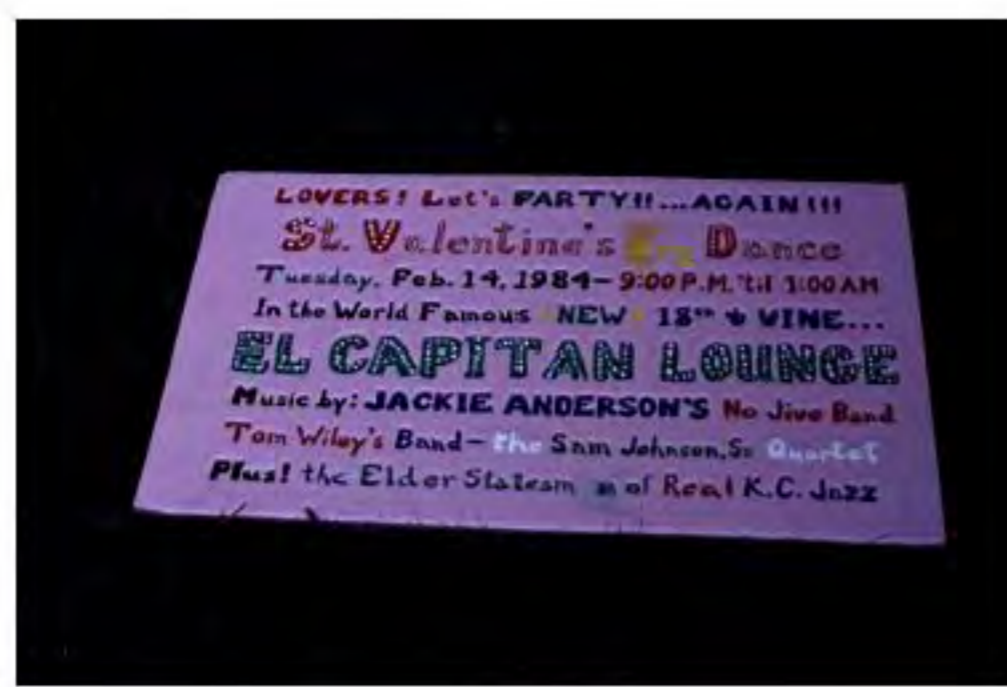 LOVERS! Let's PARTY!!...AGAIN!!!
St. Valentine's Dance
Tuesday, Feb. 14, 1984 – 9:00 P.M. 'til 1:00 AM
In the World Famous NEW 18th & VINE...
EL CAPITAN LOUNGE
Music by: JACKIE ANDERSON'S No Jive Band
Tom Wiley's Band – the Sam Johnson, Sr Quartet
Plus! the Elder of Real K.C. Jazz